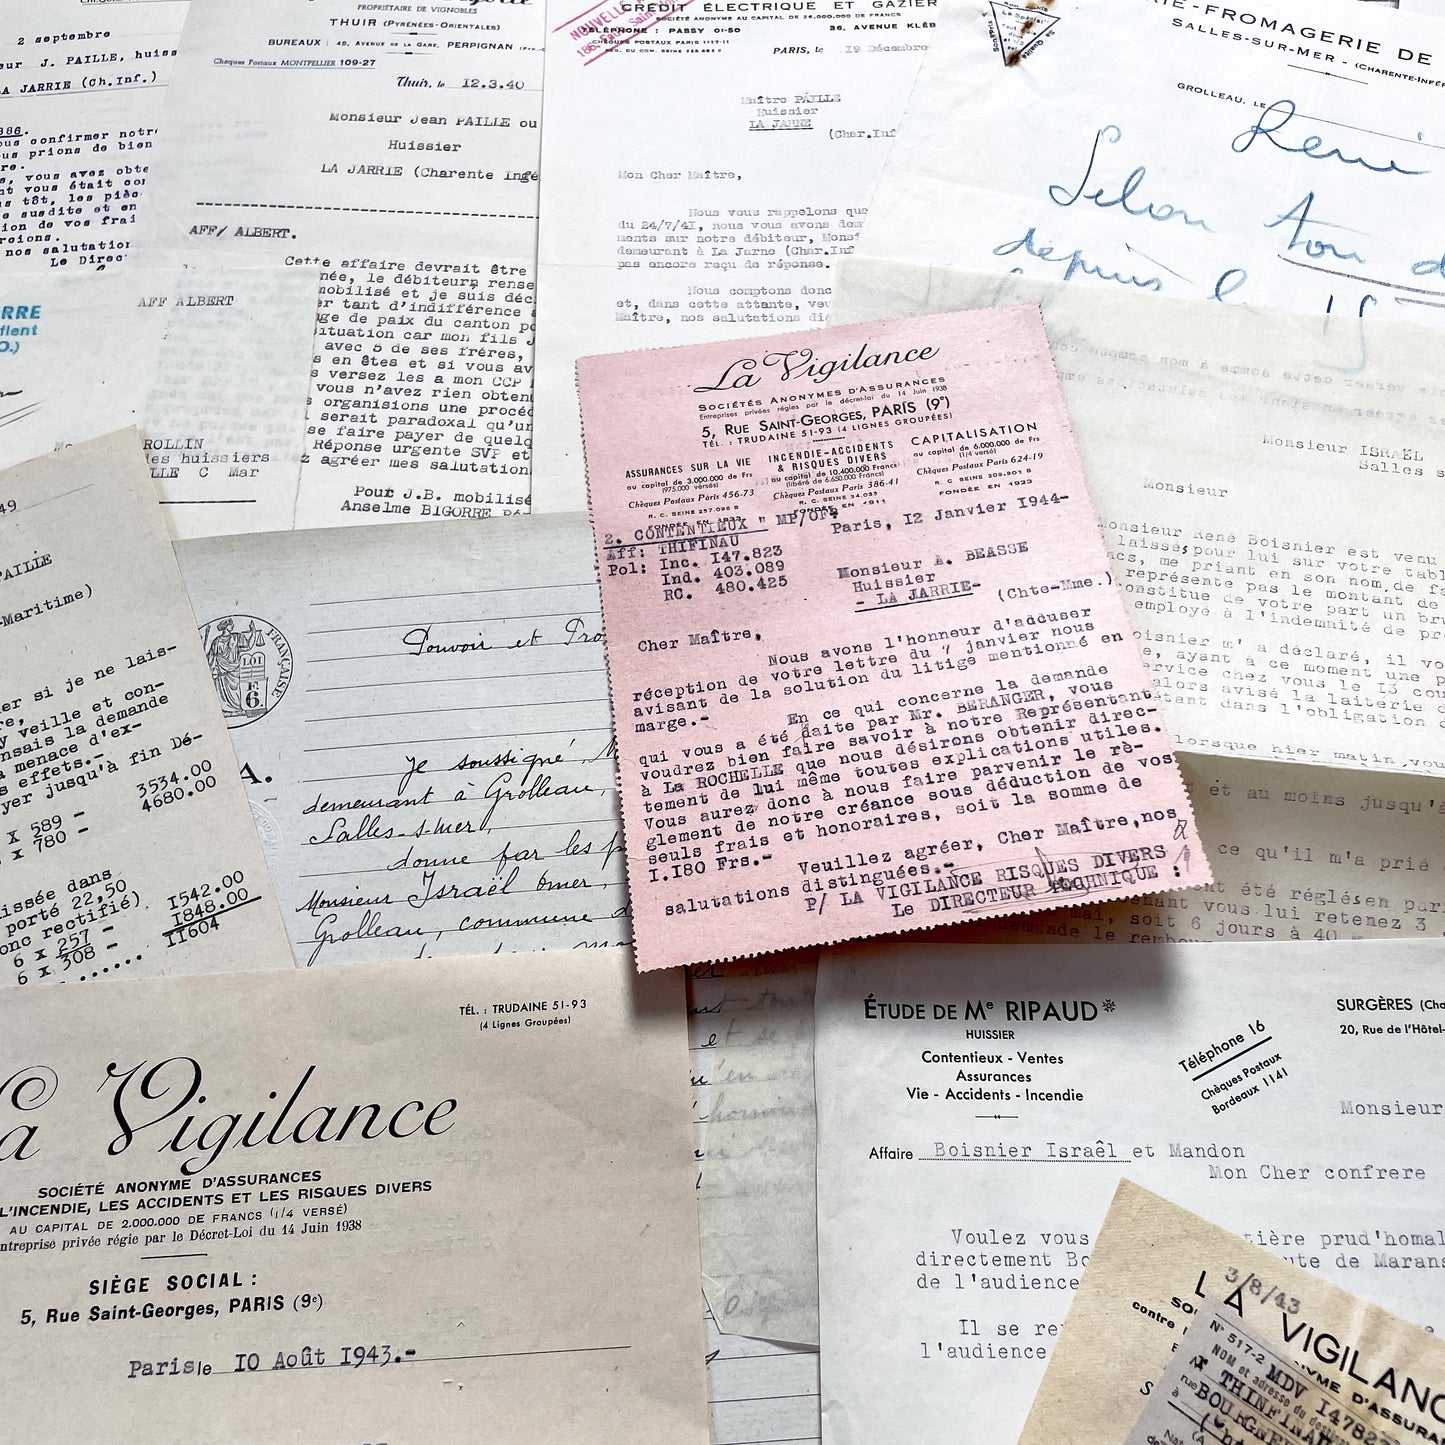 2 septembre
eur J. PAILLE, huiss
LA JARRIE (Ch.Inf.)
386.
ous confirmer notre
us prions de bien
re.
s, vous avez obte
nt vous était con
us tôt, les pièc
e susdite et en
ion de vos frai
rcions.
nos salutation
Le Direc
PROPRIÉTAIRE DE VIGNOBLES
THUIR (PYRÉNÉES-ORIENTALES)
BUREAUX : 45, AVENUE DE LA GARE, PERPIGNAN
Chèques Postaux MONTPELLIER 109-27
Thuir, le 12.3.40
Monsieur Jean PAILLE ou
Huissier
LA JARRIE (Charente Infé
AFF/ ALBERT.
Cette affaire devrait être
née, le débiteurp rense
mobilisé et je suis déc
er tant d'indifférence
ge de paix du canton po
ituation car mon fils J
avec 5 de ses fréres,
s en êtes et si vous av
s versez les a mon CCP
vous n'avez rien obten
s organisions une procéd
serait paradoxal qu'un
se faire payer de quelq
Réponse urgente SVP et
z agréer mes salutation
Pour J.B. mobilisé
Anselme BIGORRE
AFF ALBERT
ROLLIN
des huissiers
LLE C Mar
CREDIT ÉLECTRIQUE ET GAZIER
SOCIÉTÉ ANONYME AU CAPITAL DE 26.000.000 DE FRANCS
TÉLÉPHONE : PASSY 01-50
36, AVENUE KLÉB
CHÈQUES POSTAUX PARIS 1117-11
PARIS, le 19 Décembre
Maître PAILLE
Huissier
LA JARNE
(Char.Inf
Mon Cher Maître,
Nous vous rappelons que
du 24/7/41, nous vous avons dem
ments sur notre débiteur, Mons
demeurant à La Jarne (Char.Inf
pas encore reçu de réponse.
Nous comptons donc
et, dans cette attente, veu
Maître, nos salutations dis
RIE-FROMAGERIE DE
SALLES-SUR-MER - (CHARENTE-INFÉR
GROLLEAU, LE
René
depuis le 15
Monsieur ISRAËL
Salles s
Monsieur
Monsieur René Boisnier est venu
laissé pour lui sur votre tabl
cs, me priant en son nom de fa
représente pas le montant de
constitue de votre part un bru
employé à l'indemnité de pr
oisnier m' a déclaré, il vo
e, ayant à ce moment une p
service chez vous le 13 cou
alors avisé la laiterie d
étant dans l'obligation d
lorsque hier matin vou
et au moins jusqu'à
ce qu'il m'a prié
nt été réglésen par
enant vous lui retenez 3
mai, soit 6 jours à 40
demande le rembou
La Vigilance
SOCIÉTÉS ANONYMES D'ASSURANCES
Entreprises privées régies par le décret-loi du 14 Juin 1938
5, RUE SAINT-GEORGES, PARIS (9e)
TÉL. : TRUDAINE 51-93 (4 LIGNES GROUPÉES)
ASSURANCES SUR LA VIE
au capital de 3.000.000 de Frs
(975.000 versés)
Chèques Postaux Paris 456-73
R. C. SEINE 257.096 B
INCENDIE-ACCIDENTS
& RISQUES DIVERS
au capital de 10.400.000 Francs
(libéré de 6.650.000 Francs)
Chèques Postaux Paris 386-41
R. C. SEINE 34.035
FONDÉE EN 1911
CAPITALISATION
au capital de 6.000.000 de Frs
(1/4 versé)
Chèques Postaux Paris 624-19
R. C SEINE 209.903 B
FONDÉE EN 1923
2. CONTENTIEUX " MP/OF
Paris, 12 Janvier 1944-
Aff: THIFINAU
Pol: Inc. 147.823
Ind. 403.089
RC. 480.425
Monsieur A. BEASSE
Huissier
- LA JARRIE-
(Chte-Mme.)
Cher Maître,
Nous avons l'honneur d'accuser
réception de votre lettre du 7 janvier nous
avisant de la solution du litige mentionné en
marge.-
En ce qui concerne la demande
qui vous a été faite par Mr. BERANGER, vous
voudrez bien faire savoir à notre Représentant
à La ROCHELLE que nous désirons obtenir direc-
tement de lui même toutes explications utiles.
Vous aurez donc à nous faire parvenir le rè-
glement de notre créance sous déduction de vos
seuls frais et honoraires, soit la somme de
1.180 Frs.-
Veuillez agréer, Cher Maître, nos
salutations distinguées.-
P/ LA VIGILANCE RISQUES DIVERS
Le DIRECTEUR TECHNIQUE :
49
PAILLE
-Maritime)
er si je ne lais-
re,
y veille et con-
nsais la demande
a menace d'ex-
s effets.-
yer jusqu'à fin Dé-
x 589 - 3534.00
x 780 - 4680.00
issée dans
porté 22,50
onc rectifié)
6 x 257 - 1542.00
6 x 308 - 1848.00
...... 11604
RÉPUBLIQUE FRANÇAISE
LOI
F
6.
A.
Pouvoir et Pro
Je soussigné,
demeurant à Grolleau,
Salles-s-mer,
donne par les p
Monsieur Israël Omer,
Grolleau, commune d
TÉL. : TRUDAINE 51-93
(4 Lignes Groupées)
La Vigilance
SOCIÉTÉ ANONYME D'ASSURANCES
L'INCENDIE, LES ACCIDENTS ET LES RISQUES DIVERS
AU CAPITAL DE 2.000.000 DE FRANCS (1/4 VERSÉ)
ntreprise privée régie par le Décret-Loi du 14 Juin 1938
SIÈGE SOCIAL :
5, Rue Saint-Georges, PARIS (9e)
Paris le 10 Août 1943.-
ÉTUDE DE Me RIPAUD
HUISSIER
Contentieux - Ventes
Assurances
Vie - Accidents - Incendie
Téléphone 16
Chèques Postaux
Bordeaux 1141
SURGÈRES (Cha
20, Rue de l'Hôtel-
Monsieur
Affaire Boisnier Israêl et Mandon
Mon Cher confrere
Voulez vous tière prud'homal
directement Bo ute de Marans
de l'audience
Il se re
l'audience
3/8/43
LA VIGILANC
contre
N° 517-2 MDV 14782
NOM et adresse du
THINFINAU
rue BOURGNE